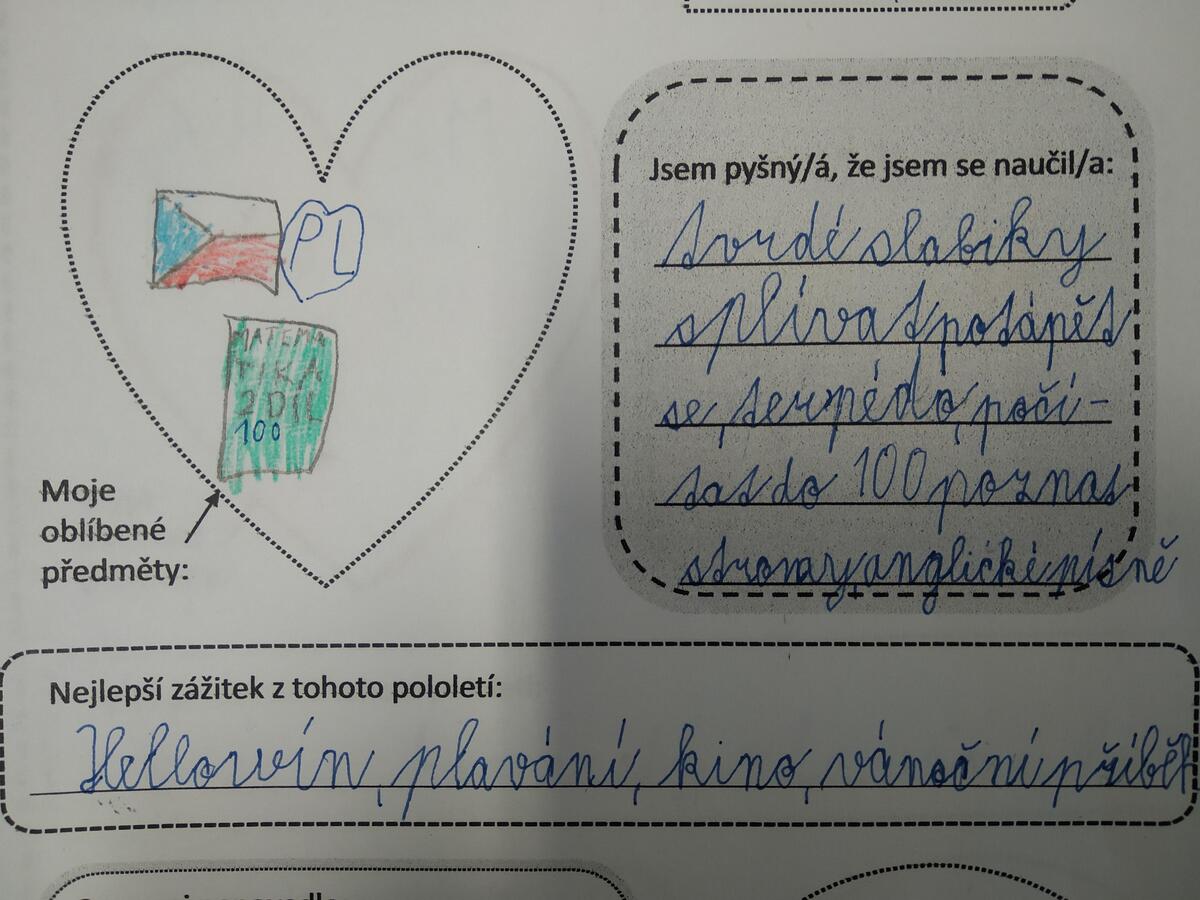 PL
MATEMA
TIKA
2 DÍL
100
Moje
oblíbené
předměty:
Jsem pyšný/á, že jsem se naučil/a:
tvrdé slabiky
splívat potápět
se, terpédo, počí-
tat do 100 poznat
stromy, anglické písně
Nejlepší zážitek z tohoto pololetí:
Hellowín, plavání, kino, vánoční příběh